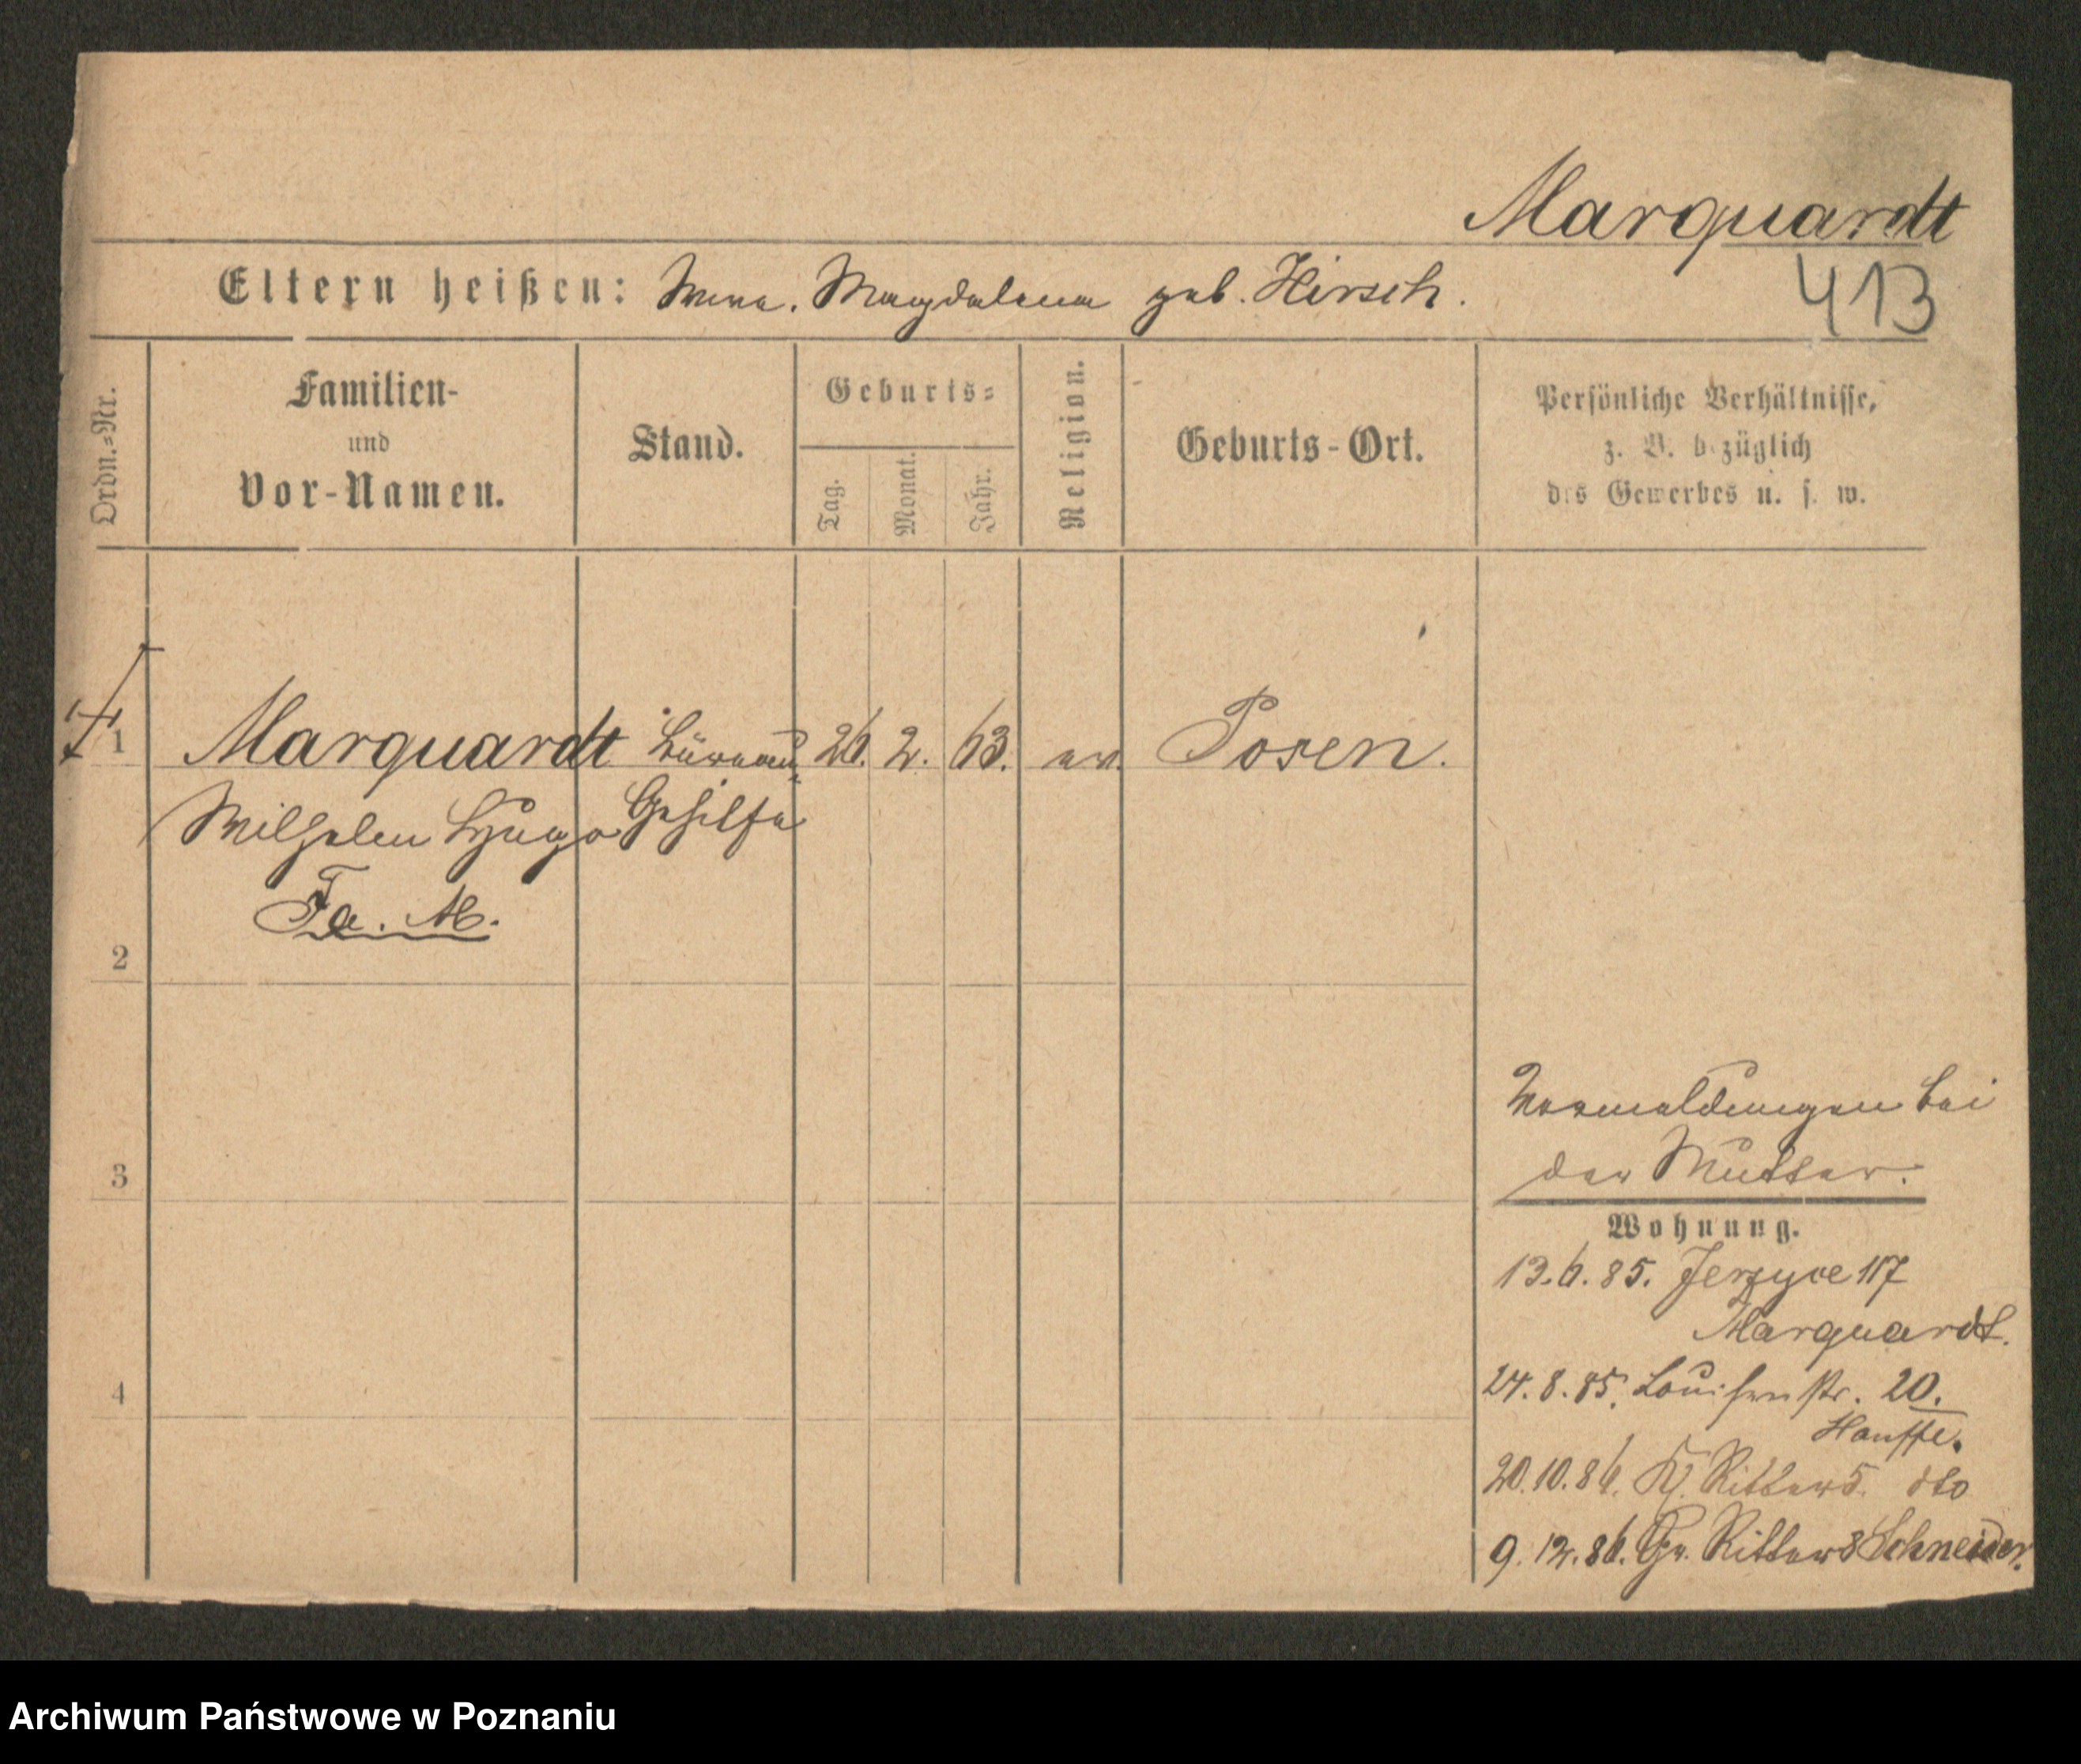 Marquardt
413
Eltern heißen: Wwe. Magdalena geb. Hirsch.
Ordn.-Nr.
Familien-
und
Vor-Namen.
Stand.
Geburts-
Tag.
Monat.
Jahr.
Religion.
Geburts-Ort.
Persönliche Verhältnisse,
z. B. bezüglich
des Gewerbes u. s. w.
1 Marquardt Büreau- 26. 2. 63. ev. Posen.
Wilhelm Hugo Gehilfe
Fa. M.
2
3
4
Vormeldungen bei
der Mutter.
Wohnung.
13.6.85. Jerzyce 117
Marquardt.
24.8.85. Louisenstr. 20.
Hauffe.
20.10.86. Kl. Ritter 5. dto
9.12.86. Gr. Ritter 8 Schneider.
Archiwum Państwowe w Poznaniu